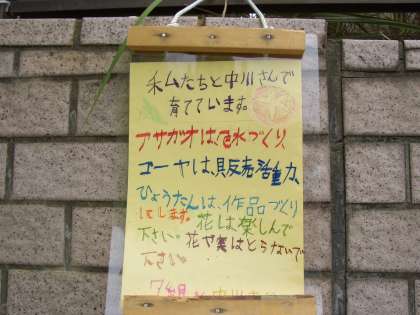 私たちと中川さんで
育てています。
アサガオは、色水づくり
ゴーヤは、販売活動、
ひょうたんは、作品づくり
をします。花は楽しんで
下さい。花や実はとらないで
下さい。
7組と中川